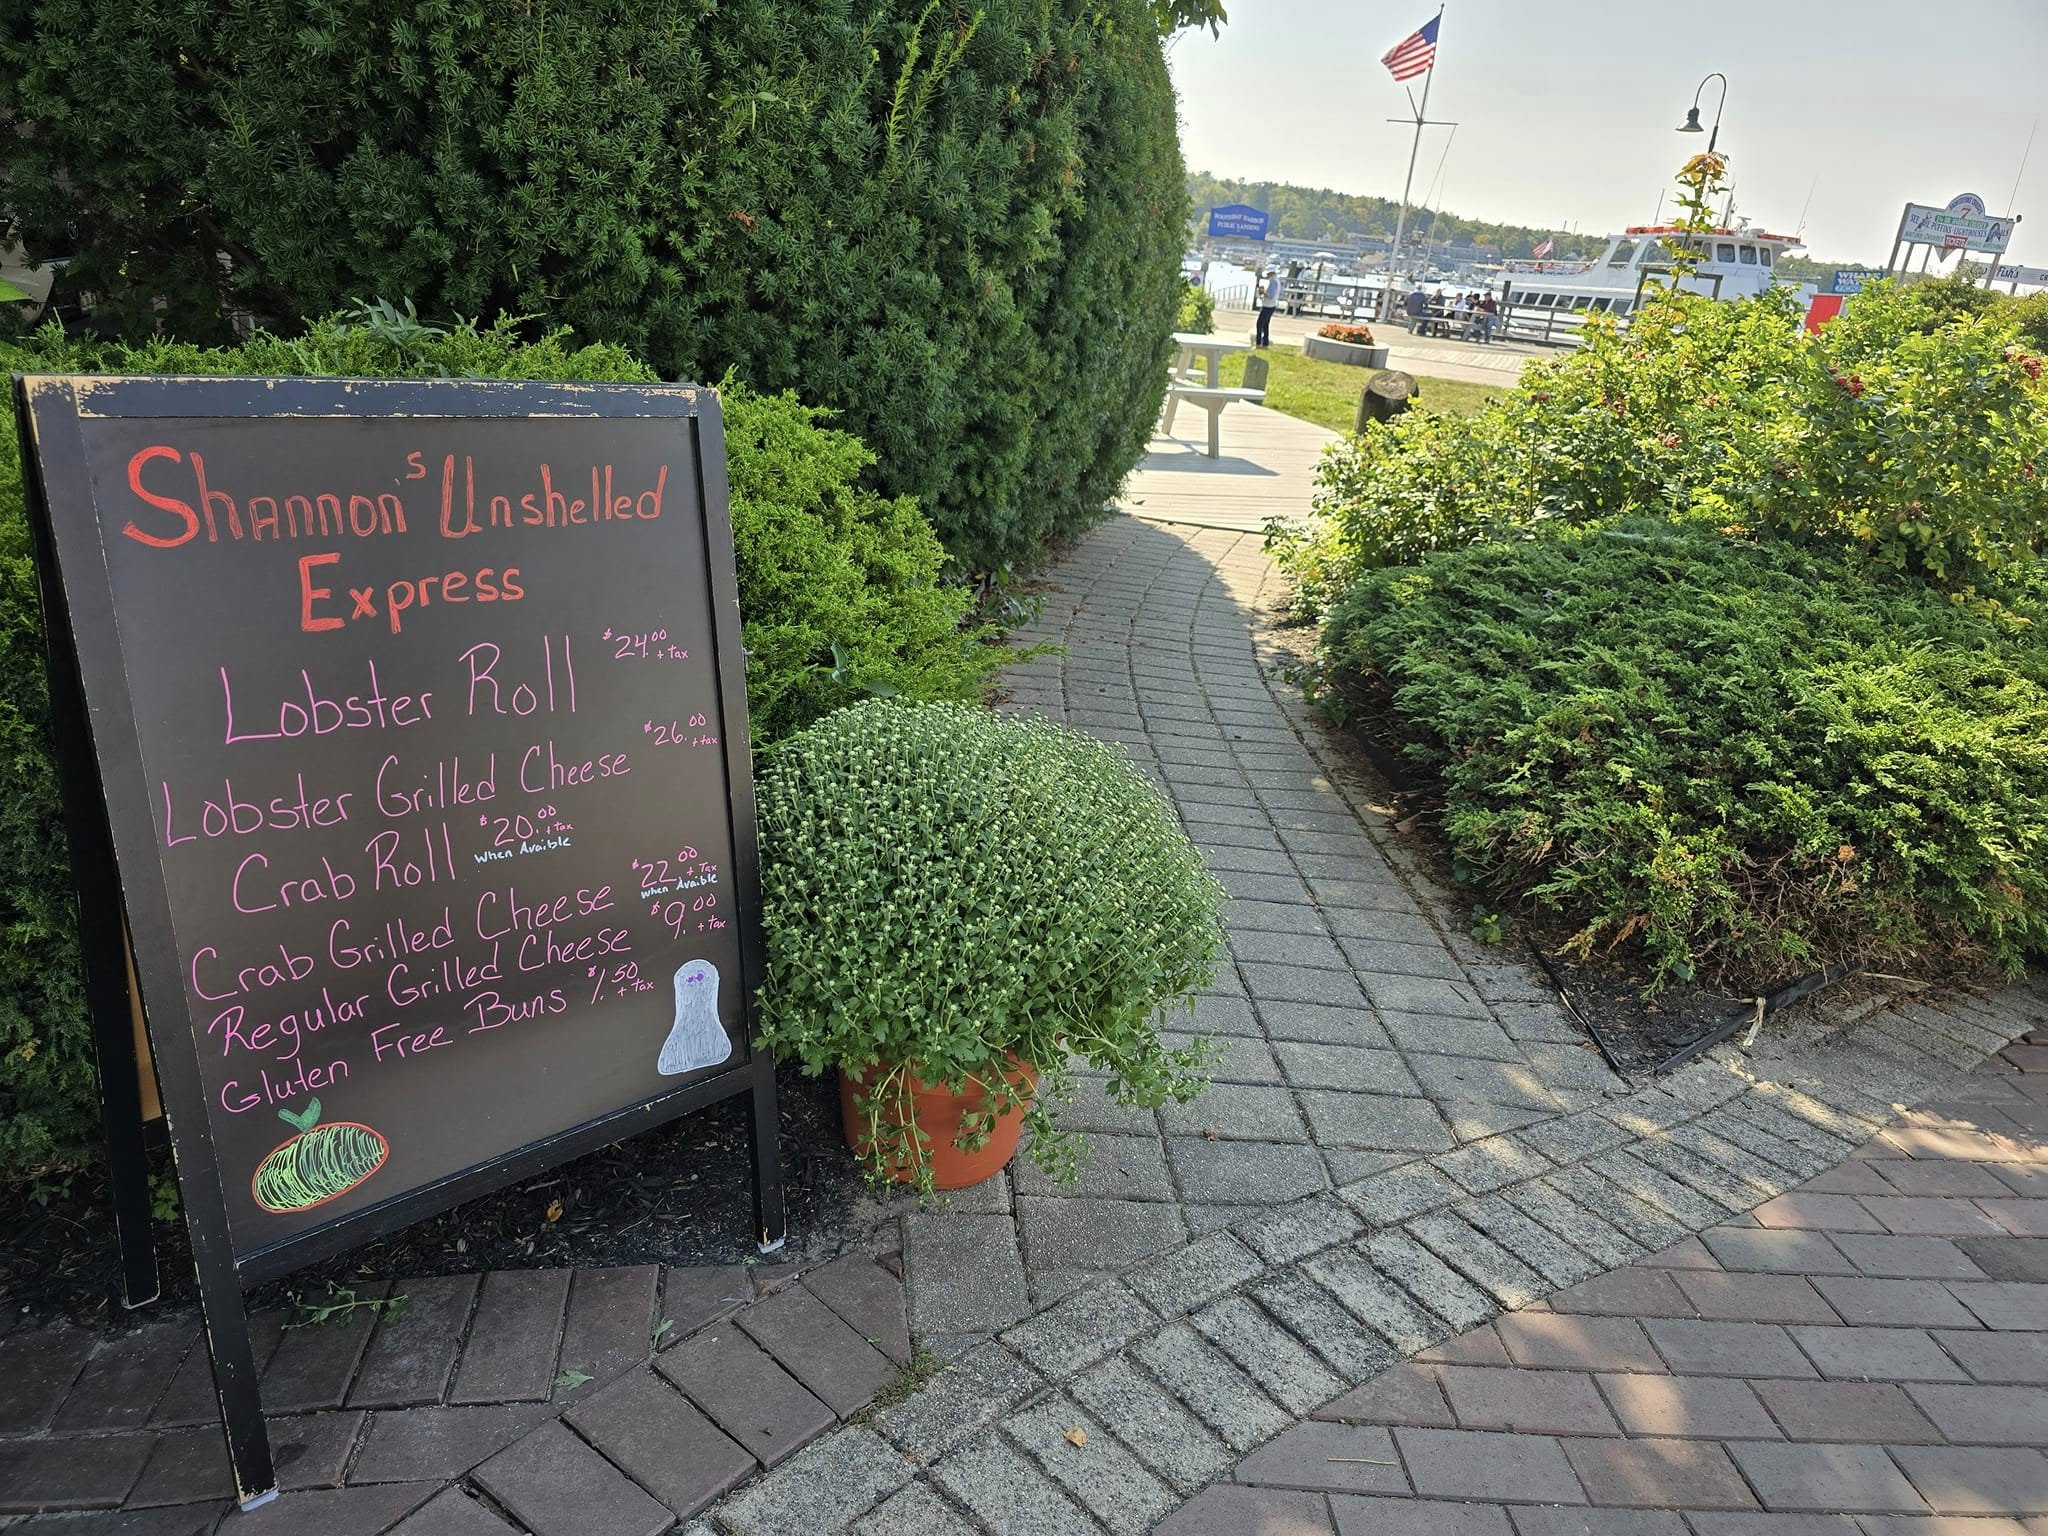 Shannon's Unshelled
Express
Lobster Roll $24.00 + tax
Lobster Grilled Cheese $26.00 + tax
Crab Roll $20.00 + tax
when Avaible
Crab Grilled Cheese $22.00 + Tax
when Avaible
Regular Grilled Cheese $9.00 + tax
Gluten Free Buns $1.50 + tax
BOOTHBAY HARBOR
PUBLIC LANDING
7
SEE PUFFINS LIGHTHOUSES
TICKETS
WHALE